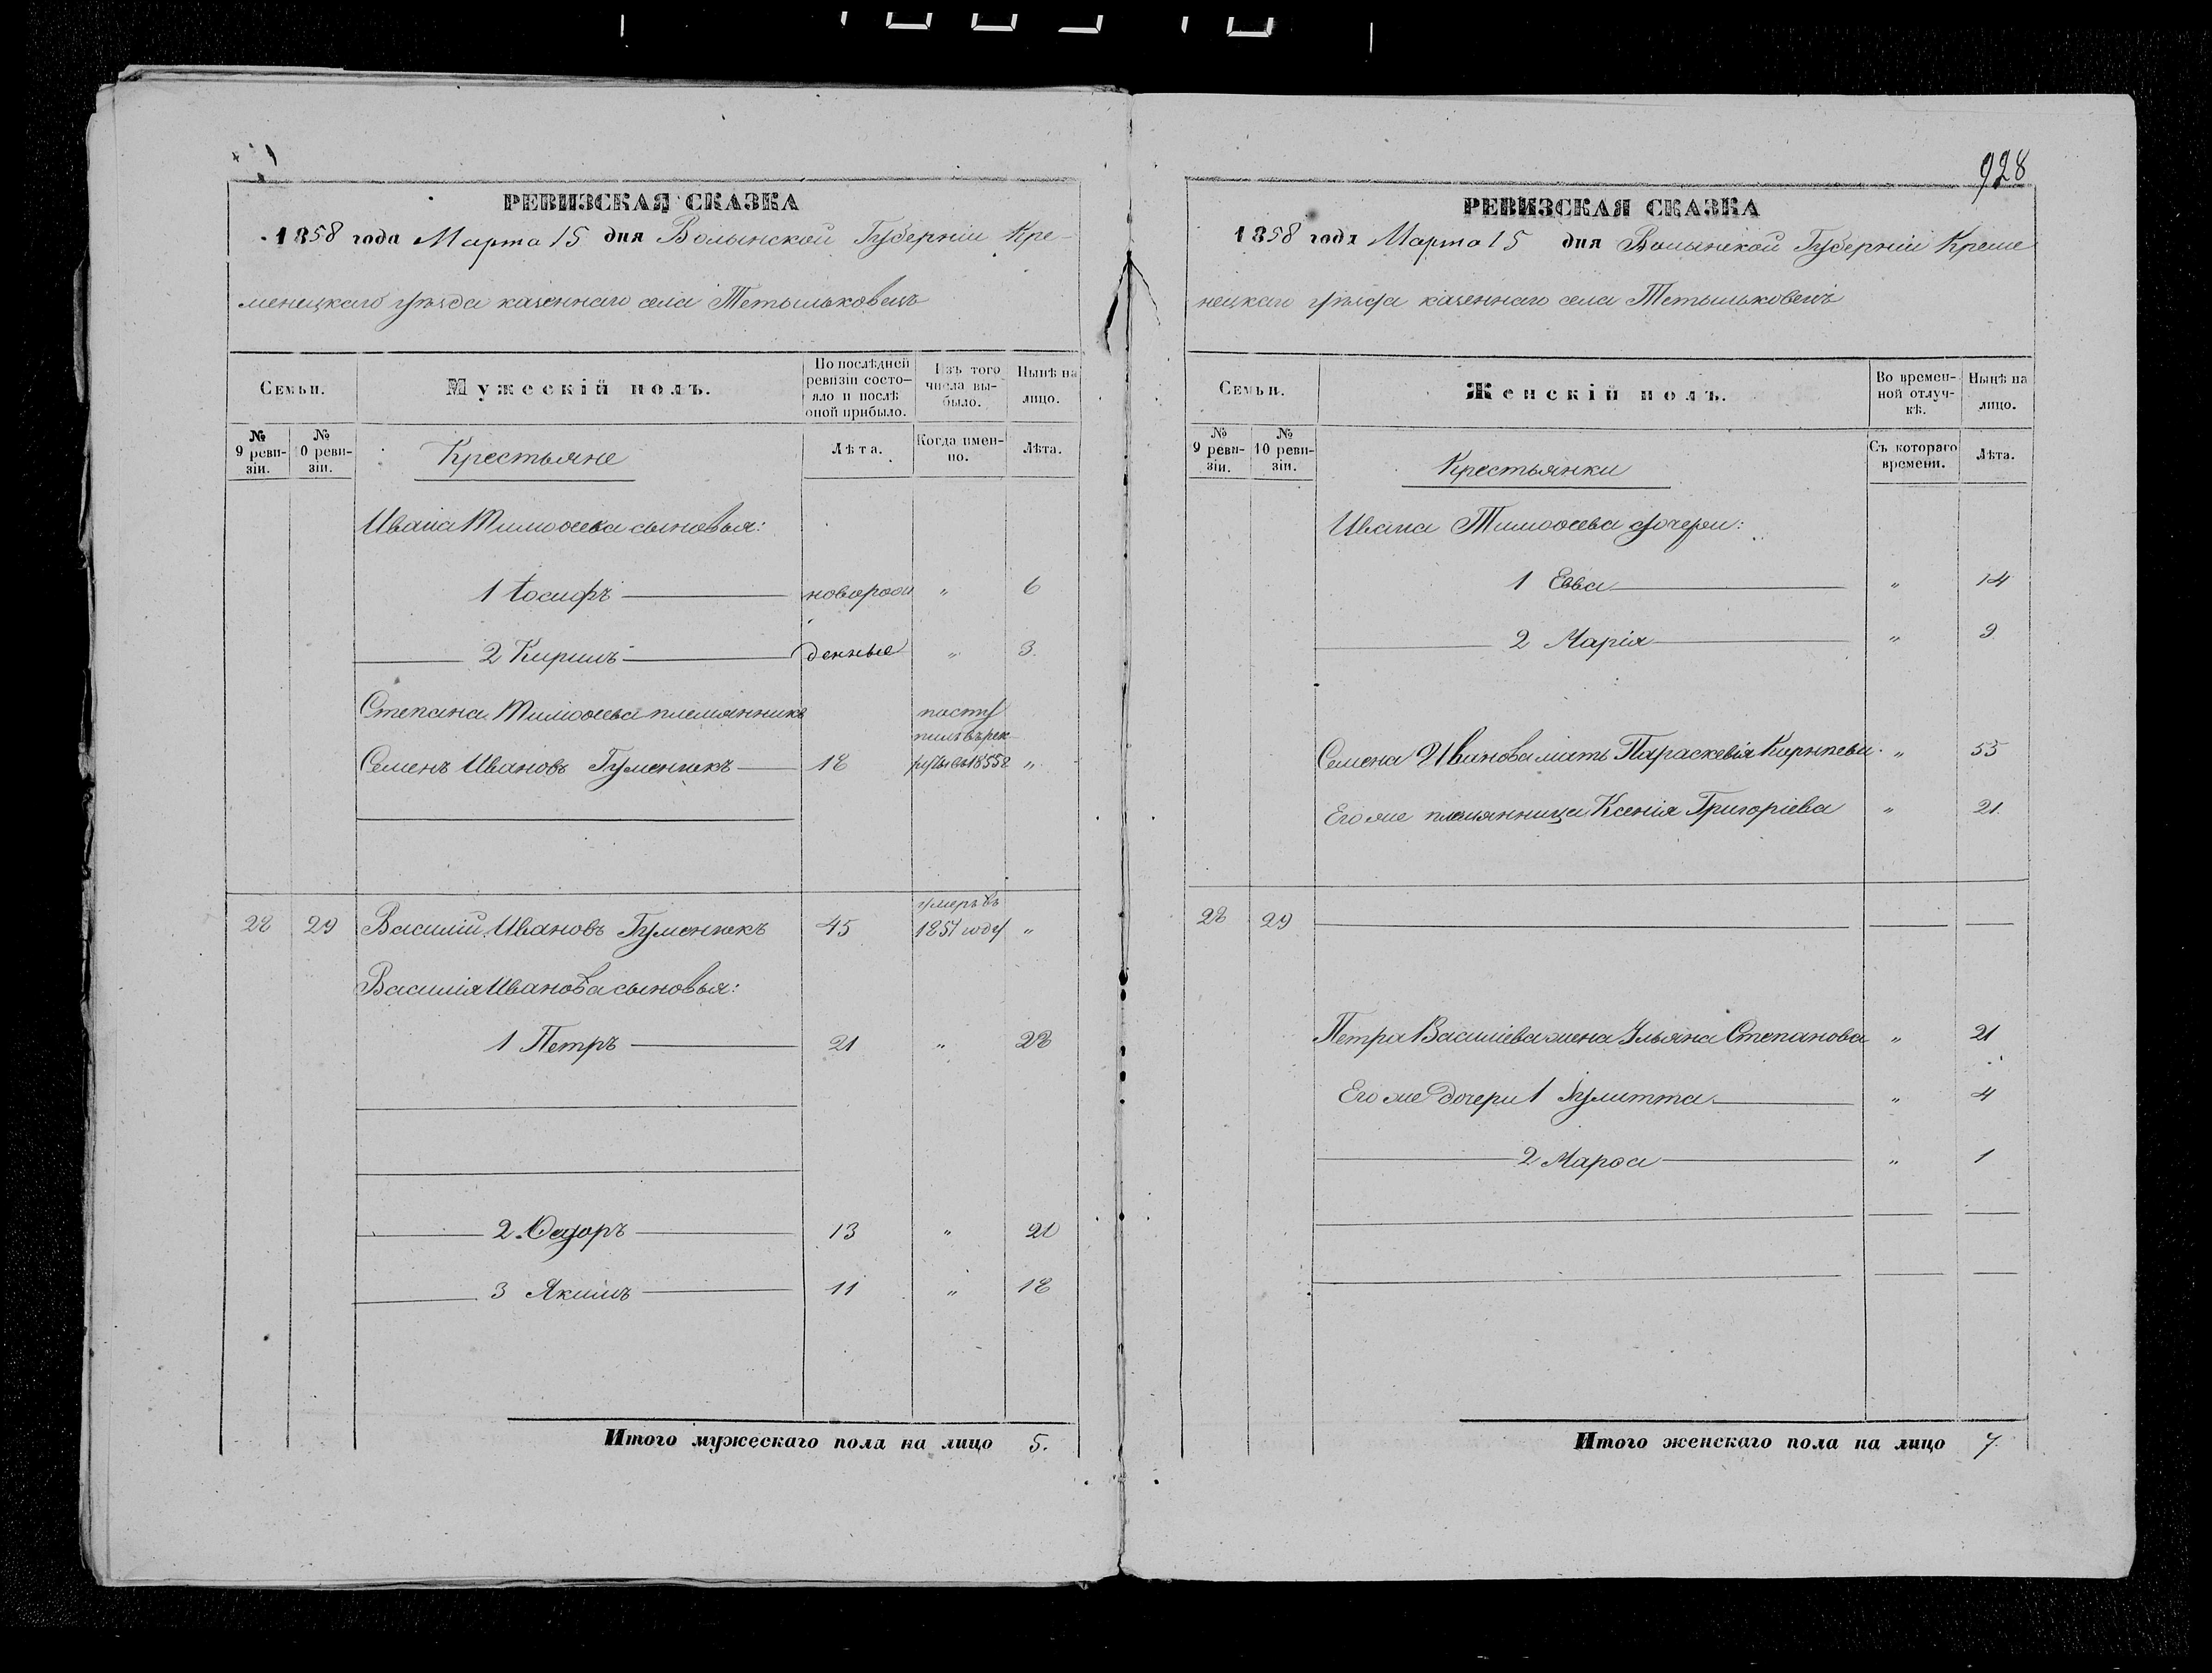 РЕВИЗСКАЯ СКАЗКА
1858 года Марта 15 дня Волынской Губерніи Кре-
менецкаго уѣзда казеннаго села Тетыльковецъ
Семьи.
Мужескій полъ.
По послѣдней ревизіи состояло и послѣ оной прибыло.
Изъ того числа выбыло.
Нынѣ на лицо.
№ 9 ревизіи.
№ 10 ревизіи.
Крестьяне
Лѣта.
Когда именно.
Лѣта.
Ивана Тимоѳеева сыновья:
1 Іосифъ новорож „ 6
2 Кирилъ денные „ 3
Степана Тимоѳеева племянникъ посту
пилъ въ рек
Семенъ Ивановъ Гуменюкъ 18 руты въ 1855 г „
умеръ въ
28 29 Василій Ивановъ Гуменюкъ 45 1851 году „
Василія Иванова сыновья:
1 Петръ 21 „ 28
2 Ѳедоръ 13 „ 20
3 Якимъ 11 „ 18
Итого мужескаго пола на лицо 5.
928
РЕВИЗСКАЯ СКАЗКА
1858 года Марта 15 дня Волынской Губерніи Креме
нецкаго уѣзда казеннаго села Тетыльковецъ
Семьи.
Женскій полъ.
Во временной отлучкѣ.
Нынѣ на лицо.
№ 9 ревизіи.
№ 10 ревизіи.
Крестьянки
Съ котораго времени.
Лѣта.
Ивана Тимоѳеева дочери:
1 Евва „ 14
2 Марія „ 9
Семена Иванова мать Параскевія Корнѣева „ 55
Его же племянница Ксенія Григоріева „ 21
28 29
Петра Василіева жена Ульяна Степанова „ 21
Его же дочери 1 Іулитта „ 4
2 Марѳа „ 1
Итого женскаго пола на лицо 7.